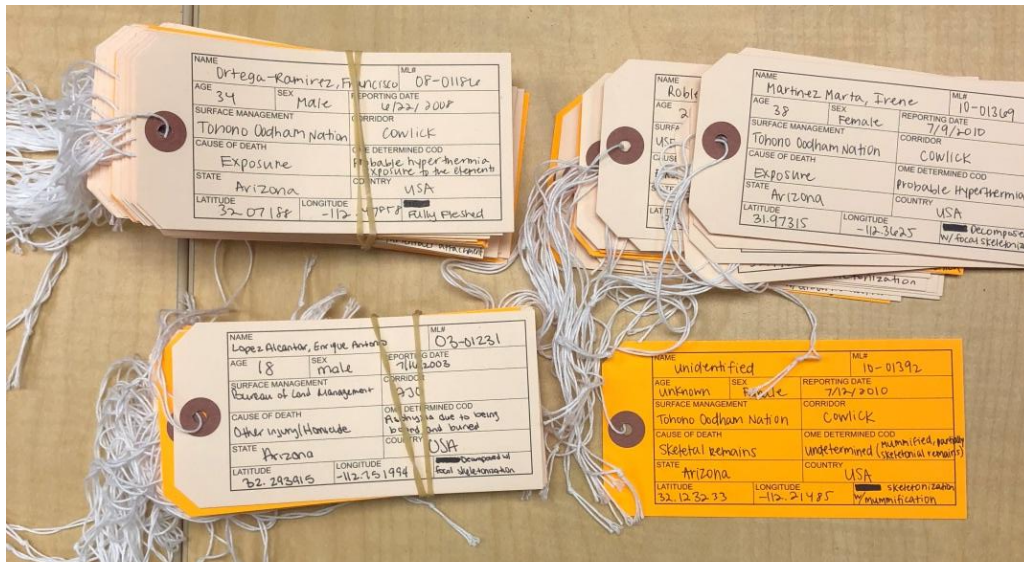 NAME
Ortega-Ramirez, Francisco
ML#
08-01186
AGE
34
SEX
Male
REPORTING DATE
6/22/2008
SURFACE MANAGEMENT
Tohono Oodham Nation
CORRIDOR
Cowlick
CAUSE OF DEATH
Exposure
OME DETERMINED COD
Probable hyperthermia
Exposure to the elements
STATE
Arizona
COUNTRY
USA
LATITUDE
32.07188
-112.
Fully Fleshed
NAME
Roble
AGE
2
NAME
Martinez Marta, Irene
ML#
10-01369
AGE
38
SEX
Female
REPORTING DATE
7/9/2010
SURFACE MANAGEMENT
Tohono Oodham Nation
CORRIDOR
Cowlick
CAUSE OF DEATH
Exposure
OME DETERMINED COD
Probable Hyperthermia
STATE
Arizona
COUNTRY
USA
LATITUDE
31.97315
LONGITUDE
-112.3625
Decompose
w/ focal skeletoniz
NAME
Lopez Alcantar, Enrique Antonio
ML#
03-01231
AGE
18
SEX
male
REPORTING DATE
7/16/2003
SURFACE MANAGEMENT
Bureau of Land Management
CORRIDOR
CAUSE OF DEATH
Other Injury/Homicide
OME DETERMINED COD
Asphyxia due to being
bound and buried
STATE
Arizona
COUNTRY
USA
LATITUDE
32.293915
LONGITUDE
-112.151994
Decomposed w/
focal skeletonization
NAME
unidentified
ML#
10-01392
AGE
unknown
SEX
Female
REPORTING DATE
7/12/2010
SURFACE MANAGEMENT
Tohono Oodham Nation
CORRIDOR
Cowlick
CAUSE OF DEATH
Skeletal remains
OME DETERMINED COD
undetermined (mummified, partially
skeletonial remains)
STATE
Arizona
COUNTRY
USA
LATITUDE
32.123233
LONGITUDE
-112.21485
skeletonization
w/ mummification